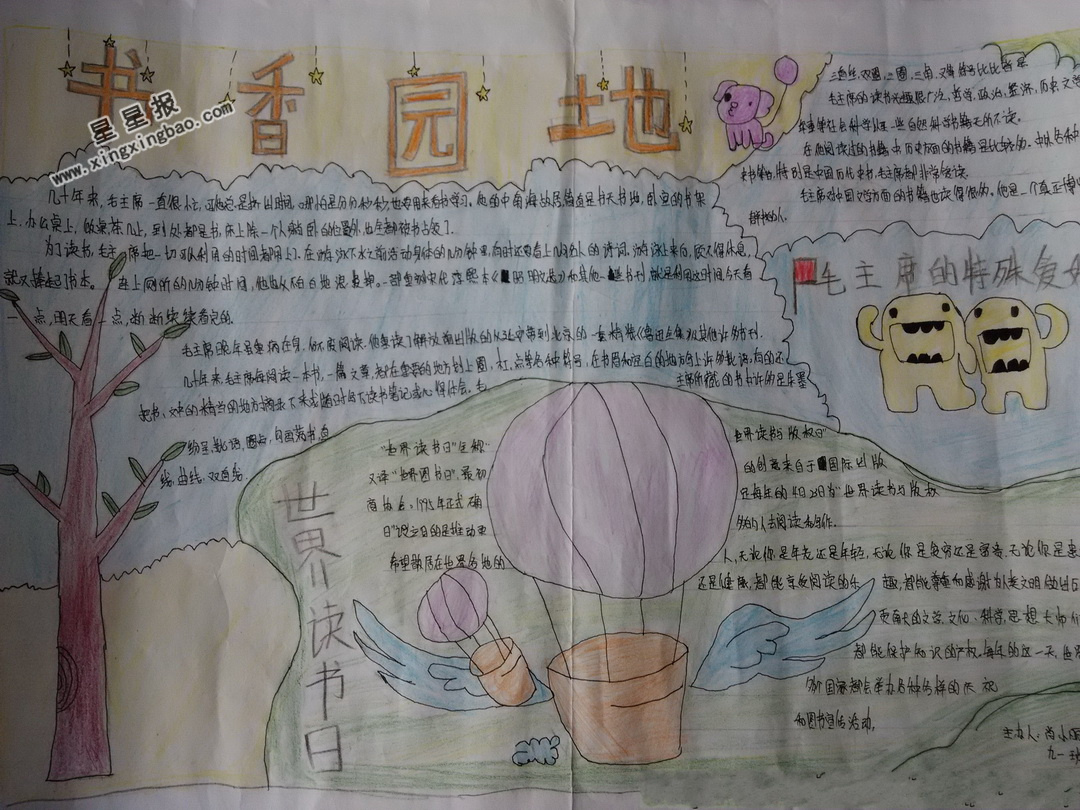 书香园地
星星报
www.xingxingbao.com
几十年来,毛主席一直很忙,可他总是抓出时间,哪怕是分分秒秒,也要用来看书学习。他的中南海故居简直是书天书地,卧室的书架
上,办公桌上,饭桌茶几上,到处都是书,床上除一个人躺卧的位置外,也全都被书占领了。
为了读书,毛主席把一切可以利用的时间都用上了。在游泳下水之前活动身体的几分钟里,有时还要看上几句名人的诗词。游泳上来后,顾不得休息,
就又捧起了书本。
一点,明天看一点,断断续续看完的。
毛主席晚年虽重病在身,仍不废阅读。
几十年来,毛主席每阅读一本书,一篇文章,都在重要的地方划上圈、杠、点等各种符号,在书眉和空白的地方写上许多批语。有的还
把书、文中的精当的地方摘录下来或随时写下读书笔记或心得体会。毛
主席所藏的书中许多是朱墨
纷呈,批语、圈点、勾画满书,直
线、曲线、双直线、
三直线、双圈、三圈、三角、叉等符号比比皆是
毛主席的读书兴趣很广泛,哲学、政治、经济、历史、文
在他阅读过的书籍中,历史方面的书籍是比较多的。中外各种
史书籍,特别是中国历代史书,毛主席都非常爱读。
毛主席对中国文学方面的书籍也读得很多,他是一个真正博
群书的人。
毛主席的特殊爱好
世界读书日
"世界读书日"全称
世界读书与版权日"
又译"世界图书日",最初
的创意来自于国际出版
商协会。1995年正式确
定每年的4月23日为"世界读书与版权
日"设立目的是推动更
多的人去阅读和写作。
希望散居在世界各地的
人,无论你是年老还是年轻,无论你是贫穷还是富有,无论你是患
还是健康,都能享受阅读的乐趣,都能尊重和感谢为人类文明做出巨
更献的文学、文化、科学思想大师们
都能保护知识的产权。每年的这一天,世界
多个国家都会举办各种各样的庆祝
和图书宣传活动。
主办人:尚
九一班